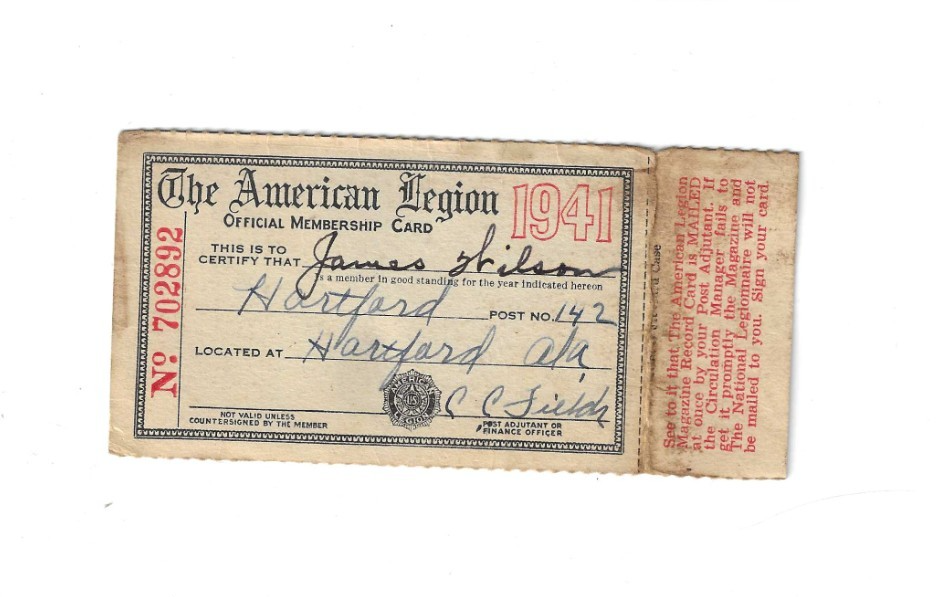 The American Legion 1941
OFFICIAL MEMBERSHIP CARD
Nº 702892
THIS IS TO
CERTIFY THAT James Wilson
is a member in good standing for the year indicated hereon
Hartford POST NO. 142
LOCATED AT Hartford Ala
AMERICAN
US
LEGION
C C Fields
NOT VALID UNLESS
COUNTERSIGNED BY THE MEMBER
POST ADJUTANT OR
FINANCE OFFICER
Case
See to it that The American Legion
Magazine Record Card is MAILED
at once by your Post Adjutant. If
the Circulation Manager fails to
get it promptly the Magazine and
The National Legionnaire will not
be mailed to you. Sign your card.